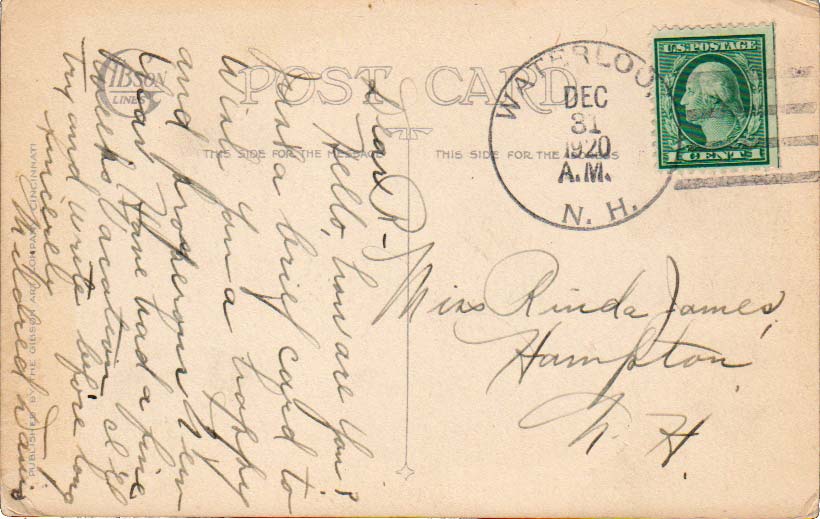 GIBSON
LINES
POST CARD
THIS SIDE FOR THE MESSAGE
THIS SIDE FOR THE ADDRESS
WATERLOO,
DEC
31
1920
A.M.
N. H.
U.S. POSTAGE
1 CENT 1
Dear R-
Hello, how are you?
Just a brief card to
Wish you a happy
and prosperous New
Year. Have had a fine
weeks vacation. I'll
try and write before long
Sincerely
Mildred Davis
Miss Rinda James,
Hampton
N. H.
PUBLISHED BY THE GIBSON ART COMPANY, CINCINNATI